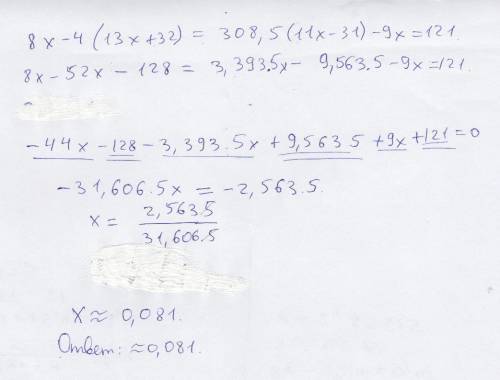 8x-4(13x+32) = 308,5(11x-31)-9x=121.
8x-52x-128 = 3,393.5x- 9,563.5-9x=121.
-44x-128-3,393.5x+9,563 5+9x+121=0
-31,606.5x = -2,563.5.
x= 2,563.5
31,606.5
x≈0,081.
Ответ: ≈0,081.